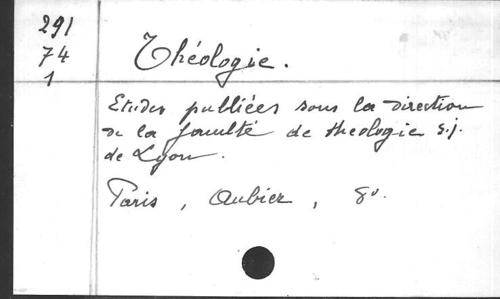 291
74
1
Théologie.
Etudes publiées sous la direction
de la faculté de theologie s.j.
de Lyon.
Paris, Aubier, 8°.